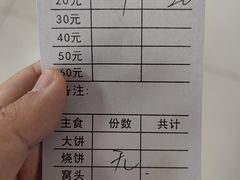 20元 1 20
30元
40元
50元
60元
备注：
主食 份数 共计
大饼
烧饼 无
窝头